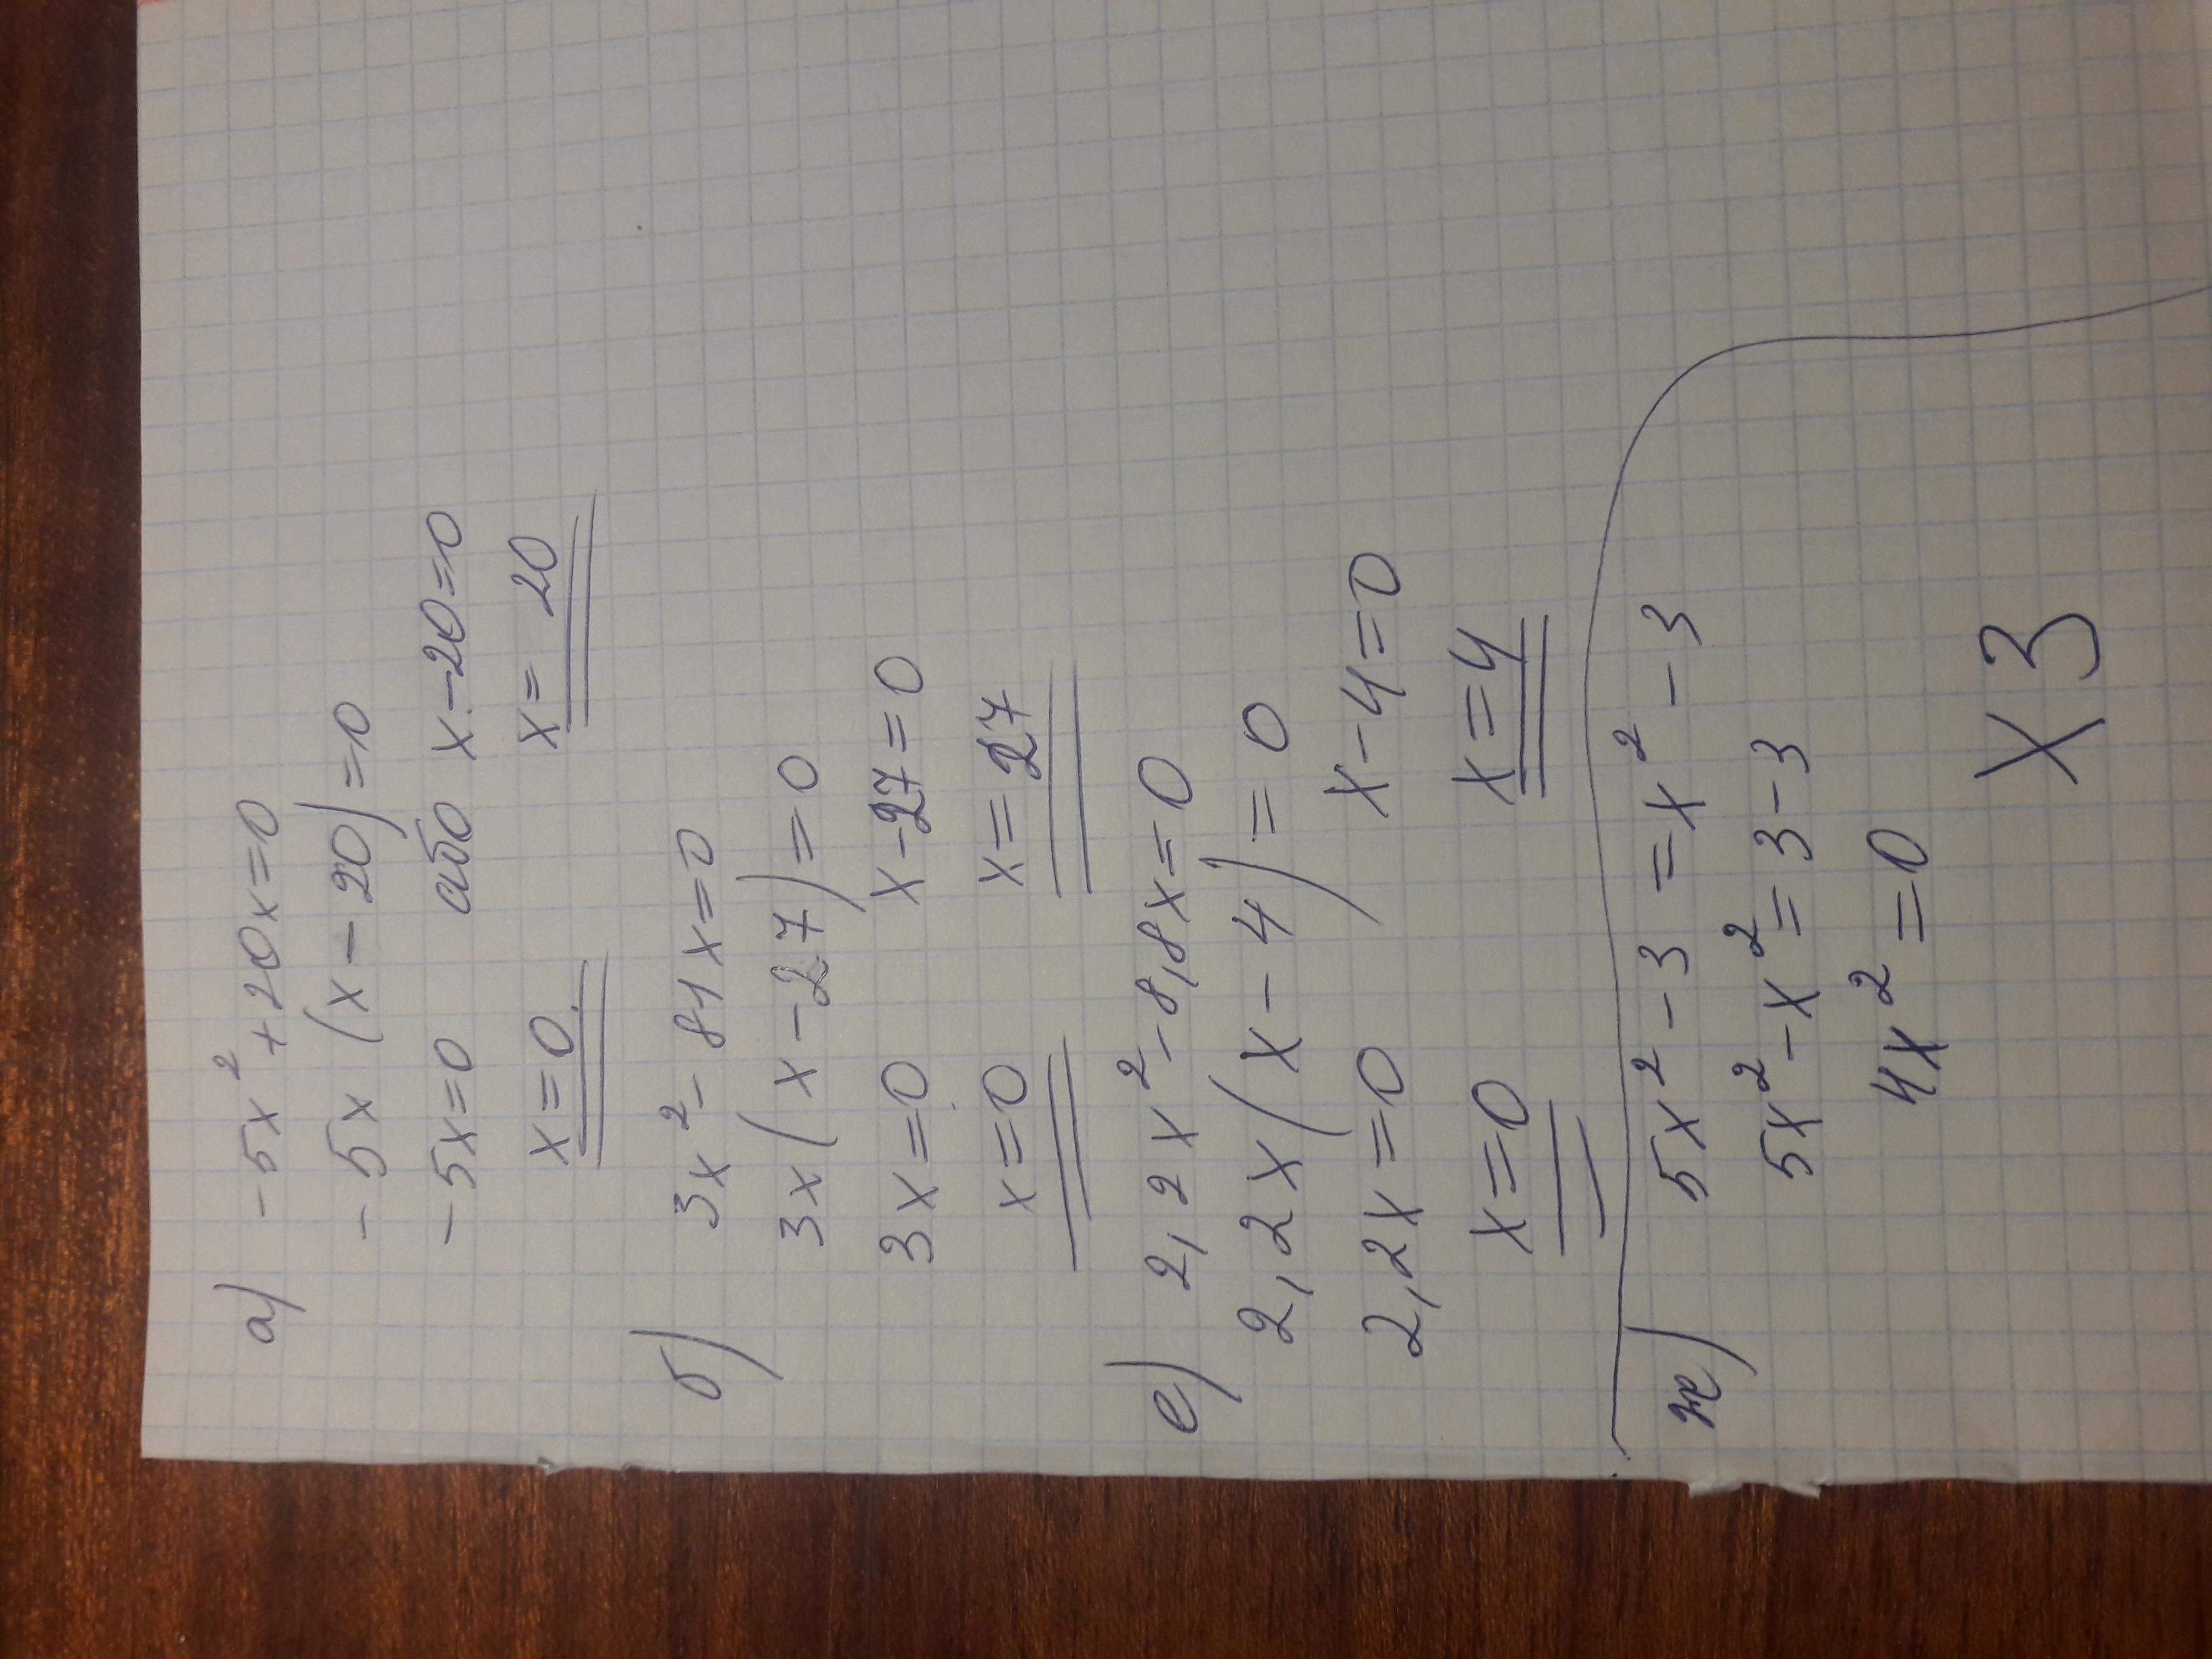 а) -5x² + 20x = 0
-5x (x - 20) = 0
-5x = 0 або x - 20 = 0
x = 0. x = 20
б) 3x² - 81x = 0
3x (x - 27) = 0
3x = 0 x - 27 = 0
x = 0 x = 27
е) 2,2x² - 8,8x = 0
2,2x (x - 4) = 0
2,2x = 0 x - 4 = 0
x = 0 x = 4
ж) 5x² - 3 = x² - 3
5x² - x² = 3 - 3
4x² = 0
X3